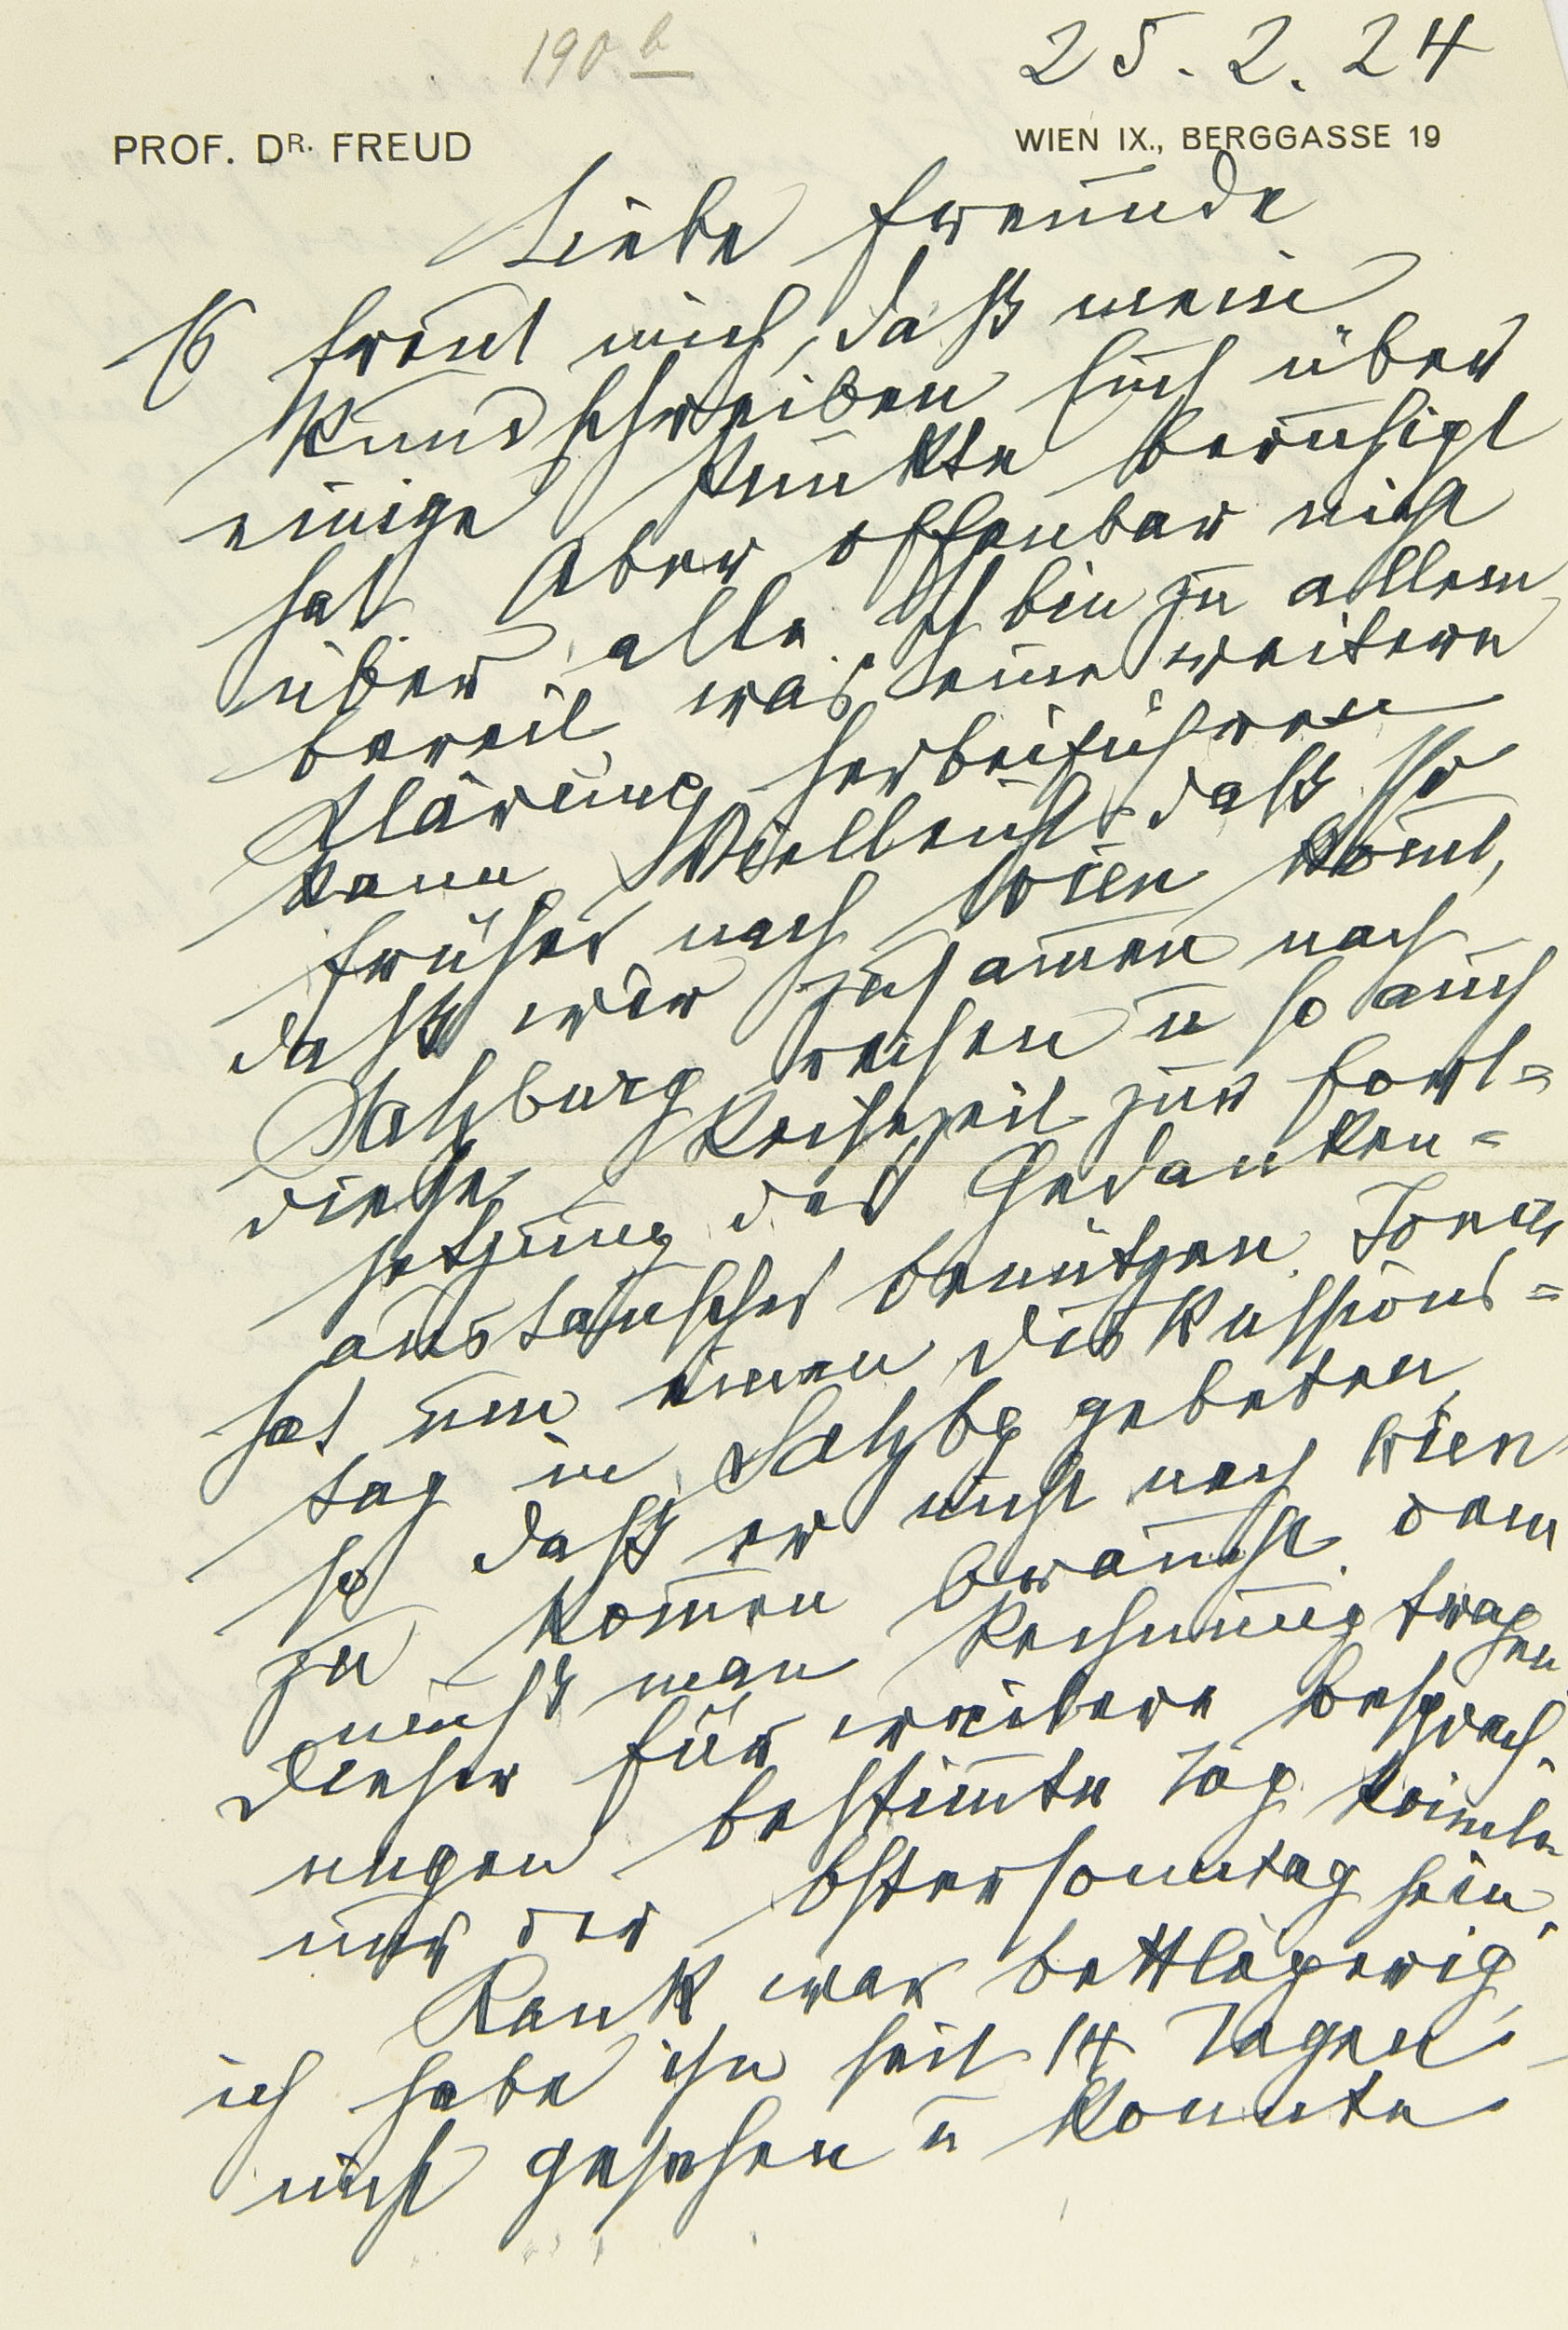 190 b
25.2.24
PROF. DR. FREUD
WIEN IX., BERGGASSE 19
Liebe Freunde
Es freut mich, daß mein
Rundschreiben Euch über
einige Punkte beruhigt
hat. Aber offenbar nicht
über alle. Ich bin zu allem
bereit, was eine weitere
Klärung herbeiführen
kann. Vielleicht daß Ihr
früher nach Wien kom̄t,
daß wir zusam̄en nach
Salzburg reisen u so auch
diese Reisezeit zur Fort=
setzung des Gedanken=
austausches benützen. Jones
hat um einen Diskussions=
tag in Salzbg gebeten,
so daß er nicht nach Wien
zu kom̄en braucht. Dem
muß man Rechnung tragen.
Dieser für weitere Besprech-
ungen bestim̄te Tag könnte
nur der Ostersonntag sein.
Rank war bettlägerig,
ich habe ihn seit 14 Tagen
nicht gesehen u konnte